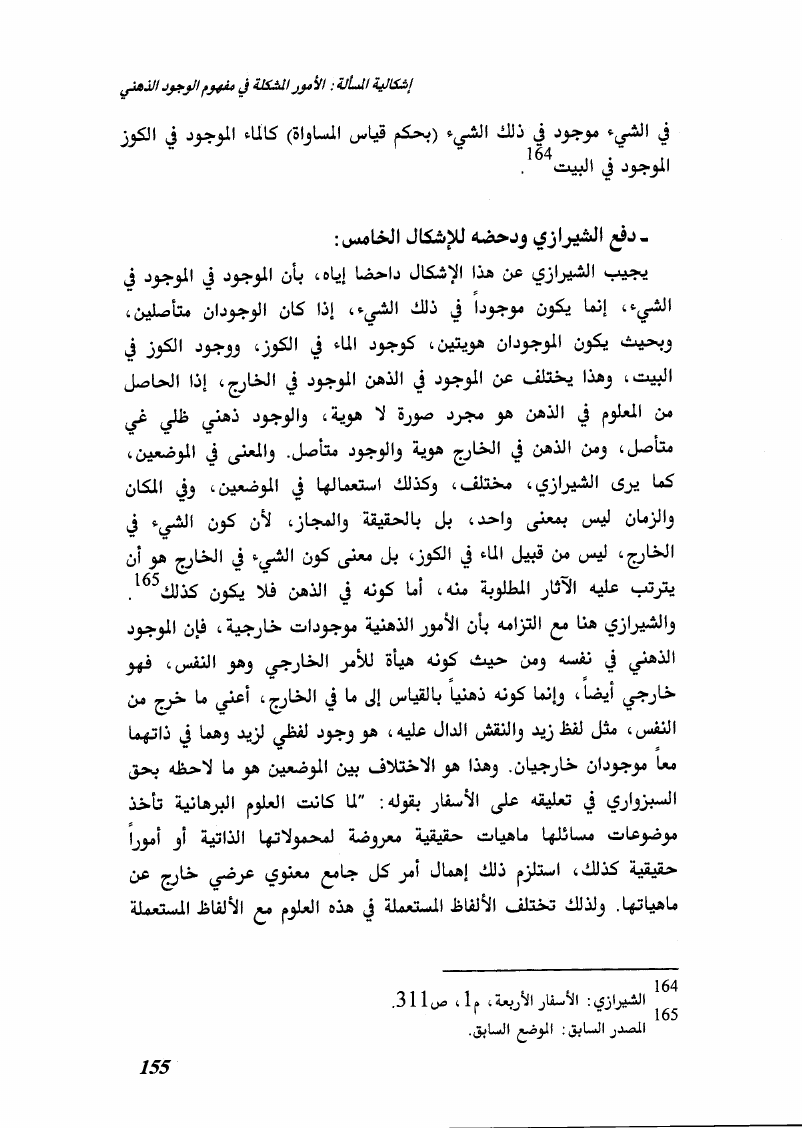 إشكالية المسألة: الأمور المشكلة في مفهوم الوجود الذهني
في الشيء موجود في ذلك الشيء (بحكم قياس المساواة) كالماء الموجود في الكوز
الموجود في البيت164.
ـ دفع الشيرازي ودحضه للإشكال الخامس:
يجيب الشيرازي عن هذا الإشكال داحضا إياه، بأن الموجود في الموجود في
الشيء، إنما يكون موجوداً في ذلك الشيء، إذا كان الوجودان متأصلين،
وبحيث يكون الموجودان هويتين، كوجود الماء في الكوز، ووجود الكوز في
البيت، وهذا يختلف عن الموجود في الذهن الموجود في الخارج، إذا الحاصل
من المعلوم في الذهن هو مجرد صورة لا هوية، والوجود ذهني ظلي غي
متأصل، ومن الذهن في الخارج هوية والوجود متأصل. والمعنى في الموضعين،
كما يرى الشيرازي، مختلف، وكذلك استعمالها في الموضعين، وفي المكان
والزمان ليس بمعنى واحد، بل بالحقيقة والمجاز، لأن كون الشيء في
الخارج، ليس من قبيل الماء في الكوز، بل معنى كون الشيء في الخارج هو أن
يترتب عليه الآثار المطلوبة منه، أما كونه في الذهن فلا يكون كذلك165.
والشيرازي هنا مع التزامه بأن الأمور الذهنية موجودات خارجية، فإن الموجود
الذهني في نفسه ومن حيث كونه هيأة للأمر الخارجي وهو النفس، فهو
خارجي أيضاً، وإنما كونه ذهنياً بالقياس إلى ما في الخارج، أعني ما خرج من
النفس، مثل لفظ زيد والنقش الدال عليه، هو وجود لفظي لزيد وهما في ذاتهما
معاً موجودان خارجيان. وهذا هو الاختلاف بين الموضعين هو ما لاحظه بحق
السبزواري في تعليقه على الأسفار بقوله: "لما كانت العلوم البرهانية تأخذ
موضوعات مسائلها ماهيات حقيقية معروضة لمحمولاتها الذاتية أو أموراً
حقيقية كذلك، استلزم ذلك إهمال أمر كل جامع معنوي عرضي خارج عن
ماهياتها. ولذلك تختلف الألفاظ المستعملة في هذه العلوم مع الألفاظ المستعملة
164 الشيرازي: الأسفار الأربعة، م1، ص311.
165 المصدر السابق: الموضع السابق.
155